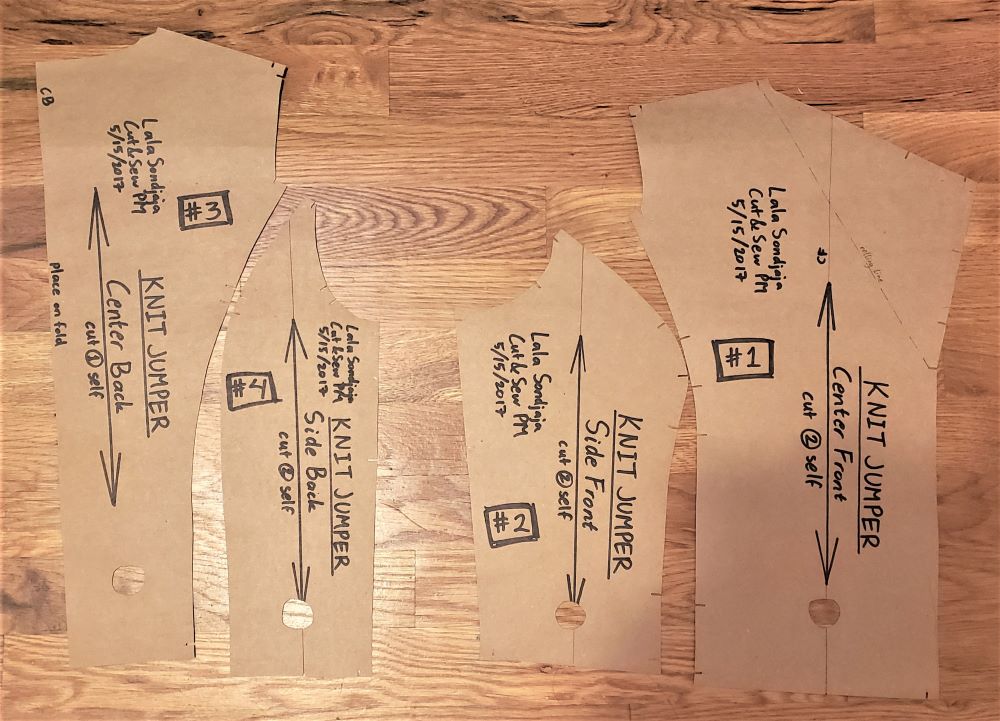 CB
Lala Sondjaja
Cut & Sew PM
5/15/2017
#3
KNIT JUMPER
Center Back
cut ① self
place on fold
Lala Sondjaja
Cut & Sew PM
5/15/2017
#4
KNIT JUMPER
Side Back
cut ② self
Lala Sondjaja
Cut & Sew PM
5/15/2017
#2
KNIT JUMPER
Side Front
cut ② self
Lala Sondjaja
Cut & Sew PM
5/15/2017
CF
rolling line
#1
KNIT JUMPER
Center Front
cut ② self